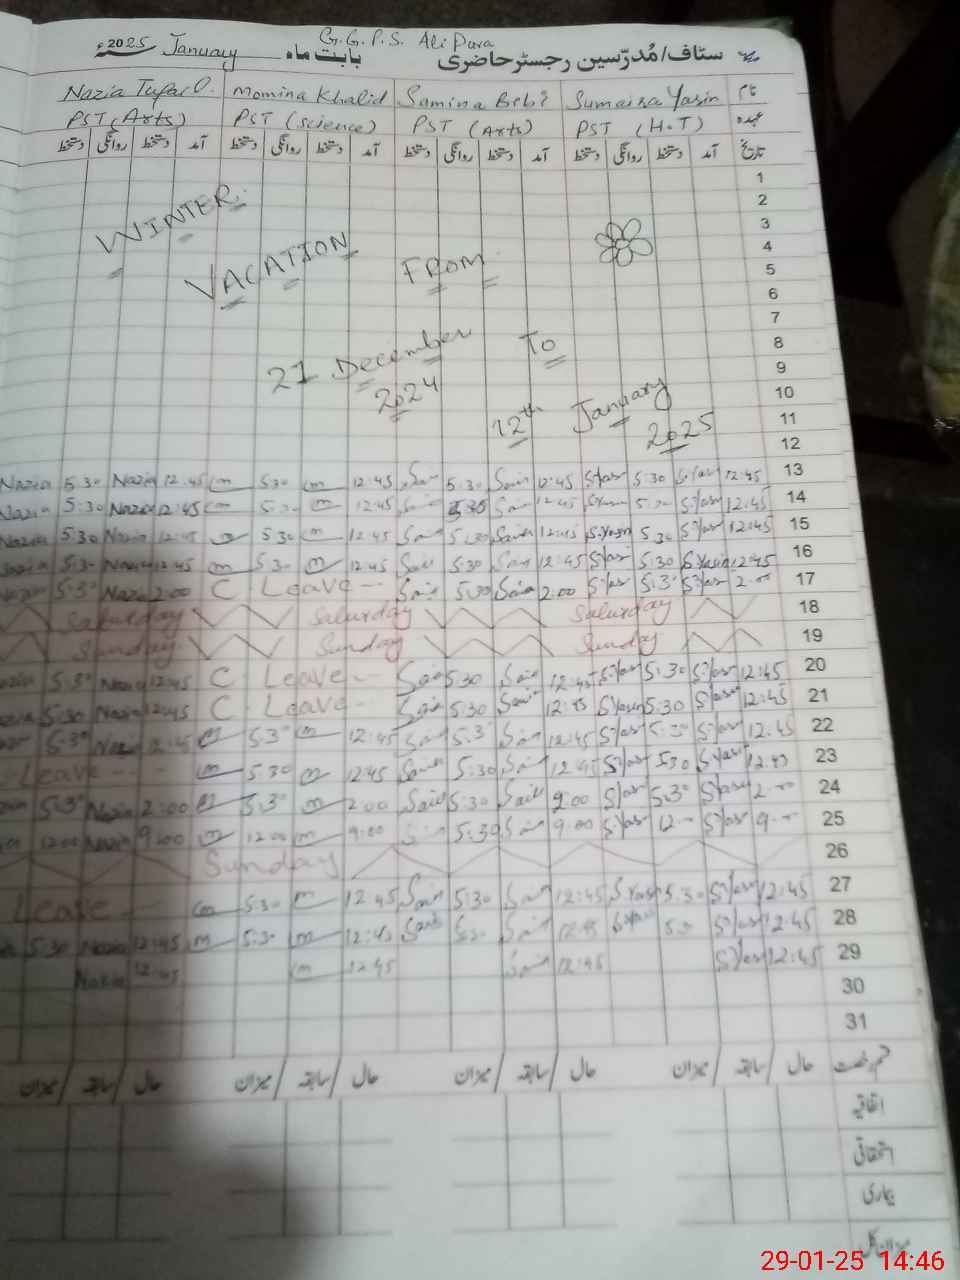 G.G.P.S. Ali Pura
سٹاف/مُدرّسین رجسٹر حاضری بابت ماہ January 2025ء
نام Sumaira Yasin Samina Bibi Momina Khalid Nazia Tufail
عہدہ PST (H.T) PST (Arts) PST (Science) PST (Arts)
تاریخ آمد دستخط روانگی دستخط آمد دستخط روانگی دستخط آمد دستخط روانگی دستخط آمد دستخط روانگی دستخط
1
2
3
4
5
6
7
8
9
10
11
12
WINTER
VACATION FROM
21 December 2024 To
12th January 2025
Nazia 5:30 Nazia 12:45 m 5:30 m 12:45 Sam 5:30 Sam 12:45 S.Yas 5:30 S.Yas 12:45 13
Nazia 5:30 Nazia 12:45 m 5:30 m 12:45 Sam 5:30 Sam 12:45 S.Yasin 5:30 S.Yas 12:45 14
Nazia 5:30 Nazia 12:45 m 5:30 m 12:45 Sam 5:30 Sam 12:45 S.Yasin 5:30 S.Yas 12:45 15
Nazia 5:30 Nazia 12:45 m 5:30 m 12:45 Sam 5:30 Sam 12:45 S.Yas 5:30 S.Yasin 12:45 16
Nazia 5:30 Nazia 2:00 C Leave Sam 5:30 Sam 2:00 S.Yas 5:30 S.Yas 2:00 17
Saturday Saturday Saturday 18
Sunday Sunday Sunday 19
Nazia 5:30 Nazia 12:45 C Leave Sam 5:30 Sam 12:45 S.Yas 5:30 S.Yas 12:45 20
Nazia 5:30 Nazia 12:45 C Leave Sam 5:30 Sam 12:45 S.Yasin 5:30 S.Yas 12:45 21
5:30 Naz 12:45 m 5:30 m 12:45 Sam 5:30 Sam 12:45 S.Yas 5:30 S.Yas 12:45 22
Leave m 5:30 m 12:45 Sam 5:30 Sam 12:45 S.Yas 5:30 S.Yas 12:45 23
5:30 Nazia 2:00 m 5:30 m 2:00 Sam 5:30 Sam 2:00 S.Yas 5:30 S.Yas 2:00 24
12:00 Nazia 9:00 m 12:00 m 9:00 Sam 5:30 Sam 9:00 S.Yas 12:00 S.Yas 9:00 25
Sunday 26
Leave m 5:30 m 12:45 Sam 5:30 Sam 12:45 S.Yas 5:30 S.Yas 12:45 27
5:30 Nazia 12:45 m 5:30 m 12:45 Sam 5:30 Sam 12:45 S.Yas 5:30 S.Yas 12:45 28
Nazia 12:45 m 12:45 Sam 12:45 S.Yas 12:45 29
30
31
قسم رخصت حال / سابقہ / میزان حال / سابقہ / میزان حال / سابقہ / میزان حال / سابقہ / میزان
اتفاقیہ
استحقاقی
بیماری
میزان کل
29-01-25 14:46